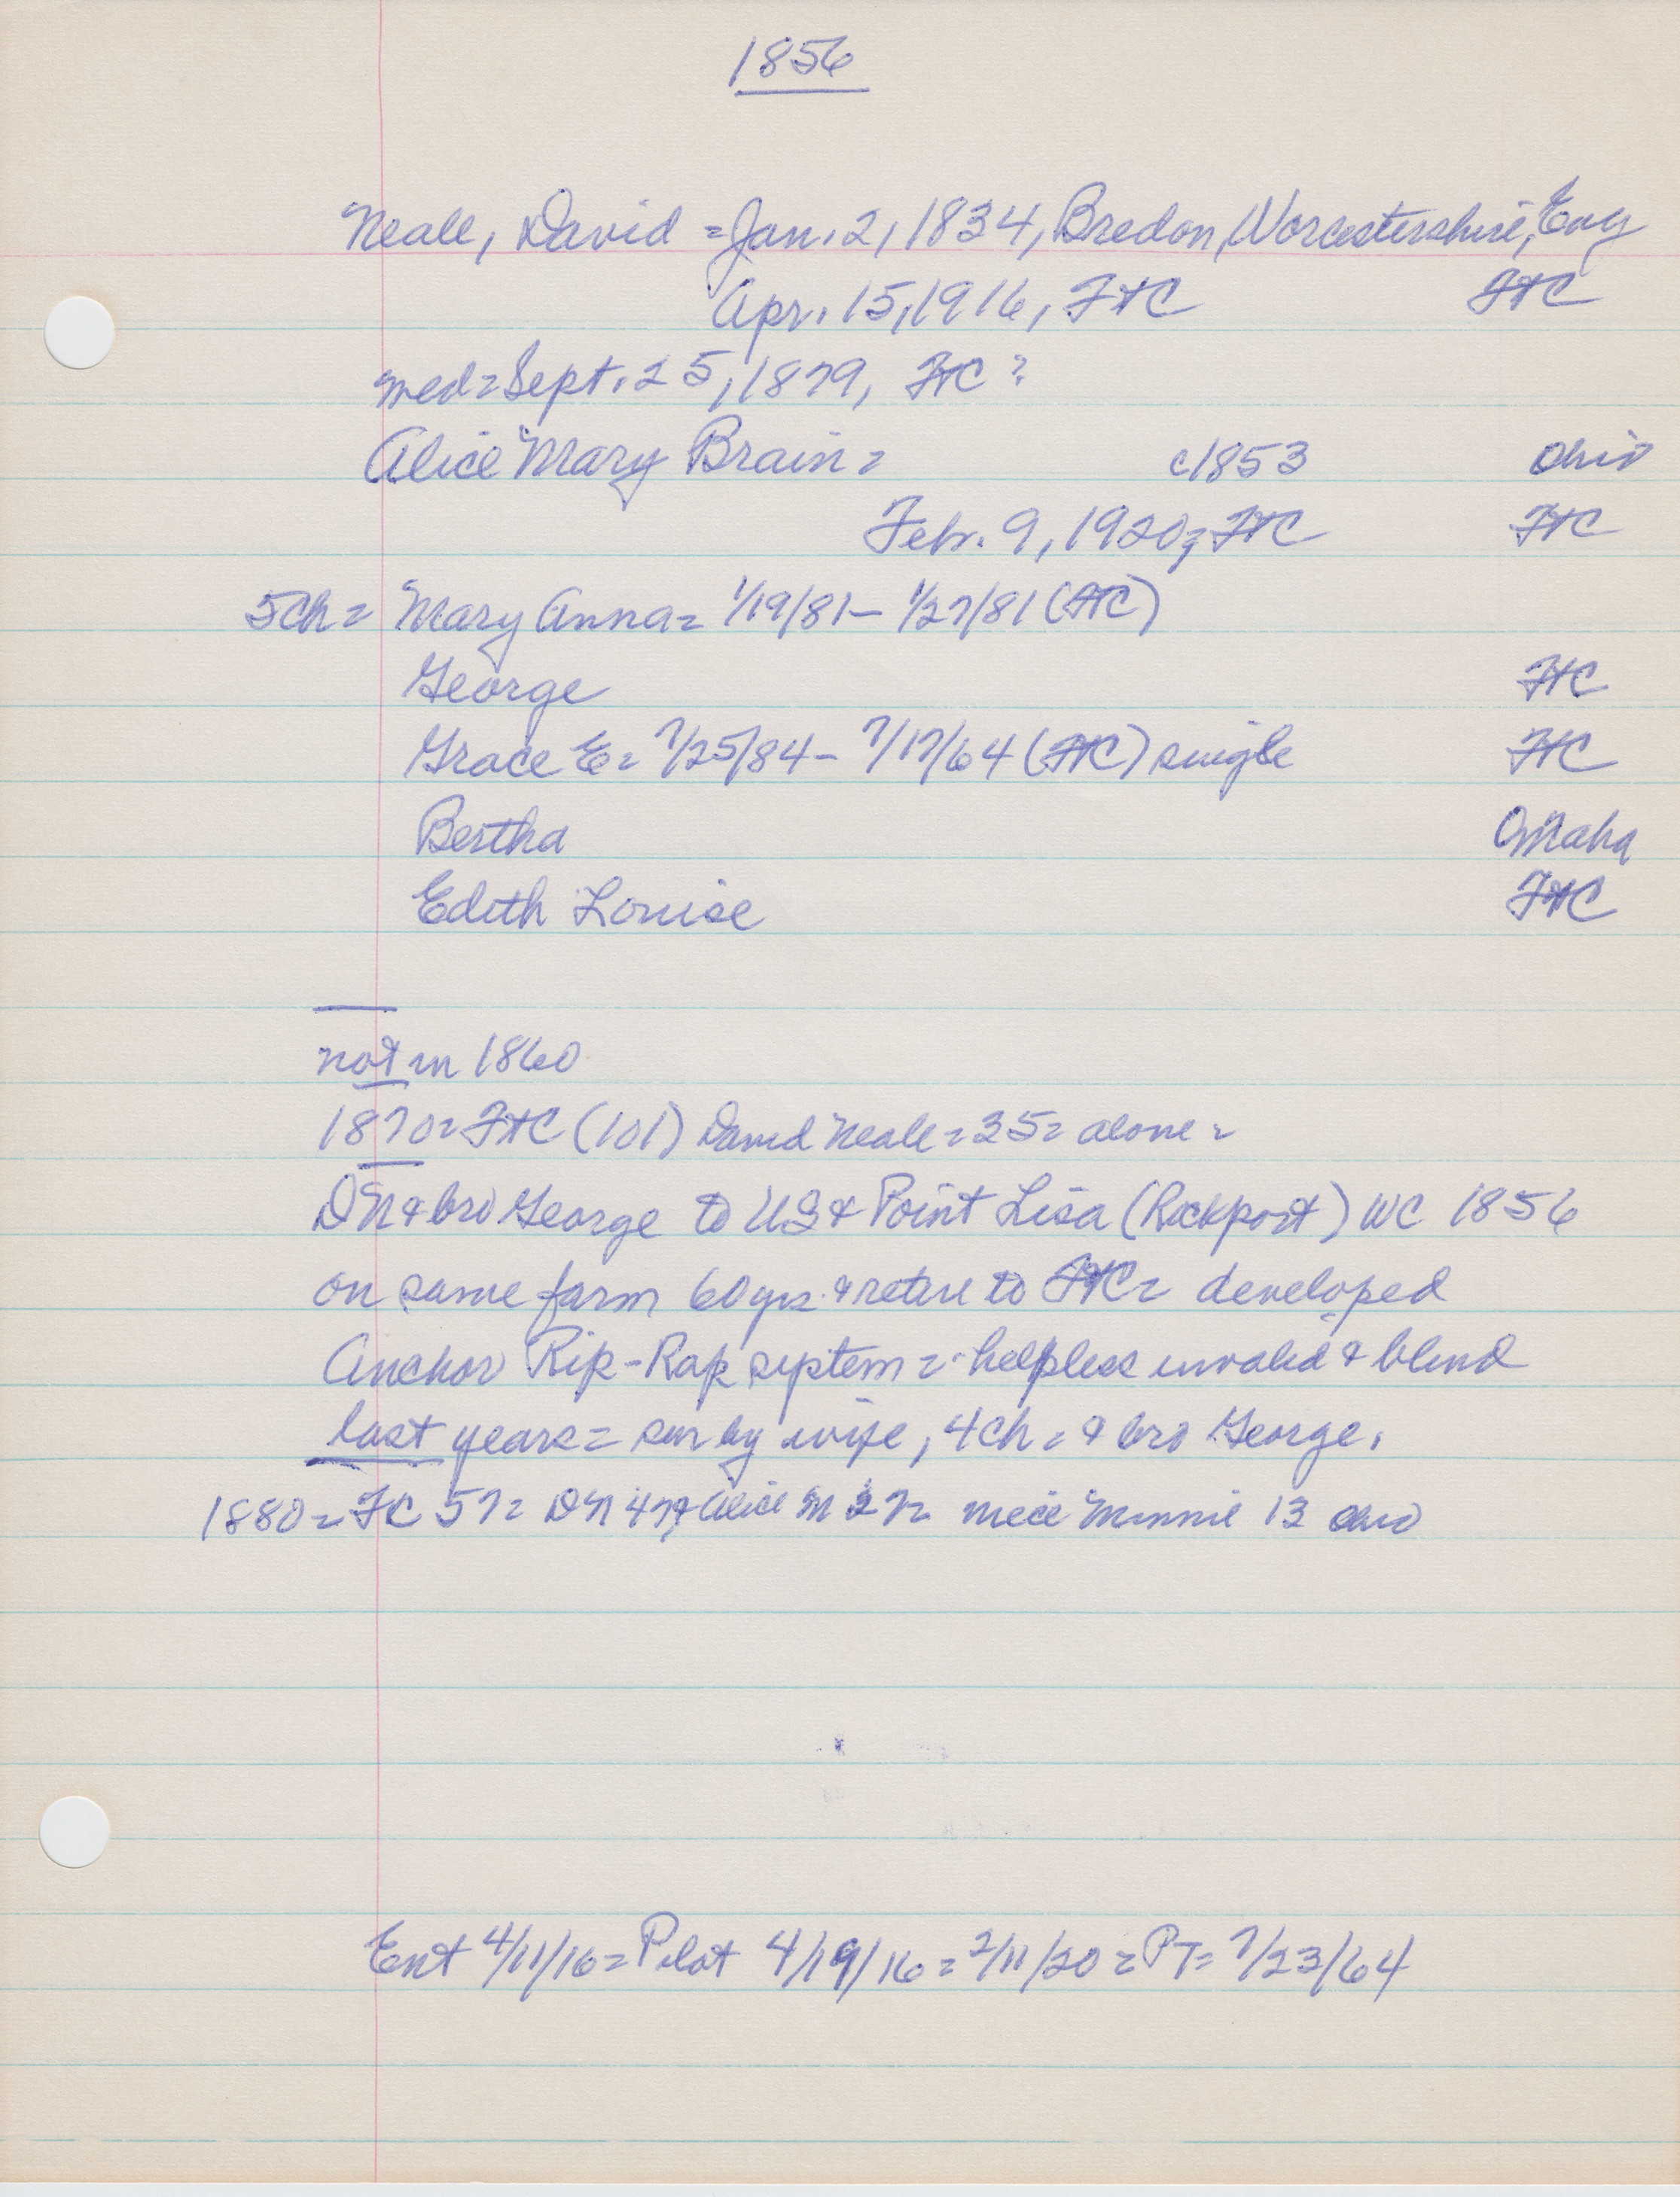 1856
Neale, David = Jan. 2, 1834, Bredon, Worcestershire, Eng
Apr. 15, 1916, FtC FtC
med = Sept. 25, 1879, FtC ?
Alice Mary Brain = c1853 Ohio
Feb. 9, 1920, FtC FtC
5ch = Mary Anna = 1/19/81 - 1/27/81 (FtC)
George FtC
Grace E = 7/25/84 - 7/17/64 (FtC) single FtC
Bertha Omaha
Edith Louise FtC
not in 1860
1870 = FtC (101) David Neale = 35 = alone =
DN & bro George to US & Point Lisa (Rockport) WC 1856
on same farm 60 yrs. & retire to FtC = developed
Anchor Rip-Rap system = helpless invalid & blind
last years = sur by wife, 4ch = & bro George.
1880 = FC 57 = DN 47 & Alice M 27 = niece Minnie 13 Ohio
Ent 4/11/16 = Pilot 4/19/16 = 2/11/20 = PT = 7/23/64